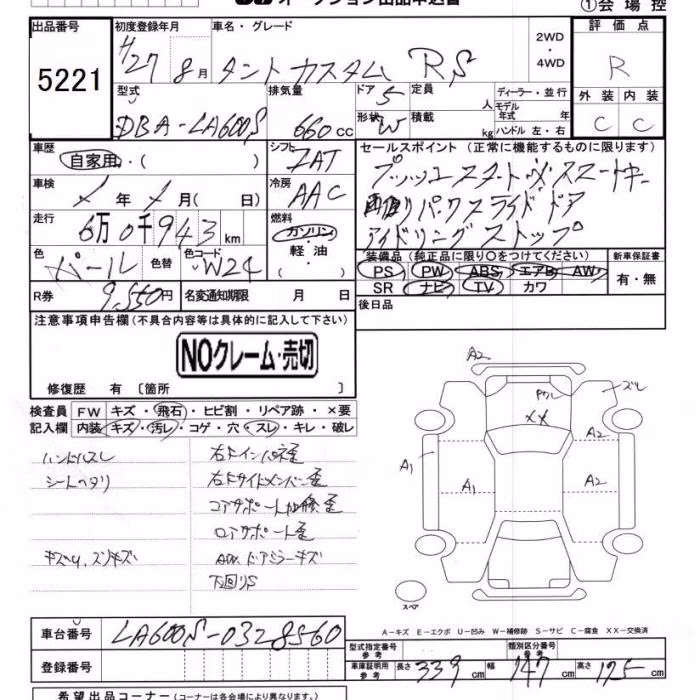 オークション出品申込書
①会場控
出品番号 5221
初度登録年月 H27年8月
車名・グレード タントカスタム RS
2WD・4WD
評価点 R
型式 DBA-LA600S
排気量 660cc
ドア 5
形状 W
定員 人
積載 kg
ディーラー・並行
モデル年式 年
ハンドル 左・右
外装 C
内装 C
車歴 自家用・( )
シフト IAT
セールスポイント (正常に機能するものに限ります)
プッシュスタート スマートキー
両側パワースライドドア
アイドリングストップ
車検 年 月( 日)
冷房 AAC
走行 6万0千943km
燃料 ガソリン・軽油・( )
色 パール
色替
色コード W24
装備品 (純正品に限り○をつけてください)
PS PW ABS エアB AW
SR ナビ TV カワ
新車保証書 有・無
R券 9,550円
名変通知期限 月 日
後日品
注意事項申告欄(不具合内容等は具体的に記入して下さい)
NOクレーム・売切
修復歴 有 [箇所 ]
検査員記入欄
FW キズ・飛石・ヒビ割・リペア跡・×要
内装 キズ・汚レ・コゲ・穴・スレ・キレ・破レ
ハンドルスレ
シートヘタリ
右Fインパネ歪
右Fサイドメンバー歪
コアサポート 修 歪
ロアサポート歪
キズU、ヌンキズ
AW、ドアミラーキズ
下回りS
A2
ズレ
XX
A2
A1
A1
A2
スペア
A-キズ E-エクボ U-凹み W-補修跡 S-サビ C-腐食 XX-交換済
車台番号 LA600S-0328560
型式指定番号 参考
類別区分番号 参考
登録番号
車庫証明用 参考 長さ 339cm 幅 147cm 高さ 175cm
希望出品コーナー(コーナーは各会場により異なります。)